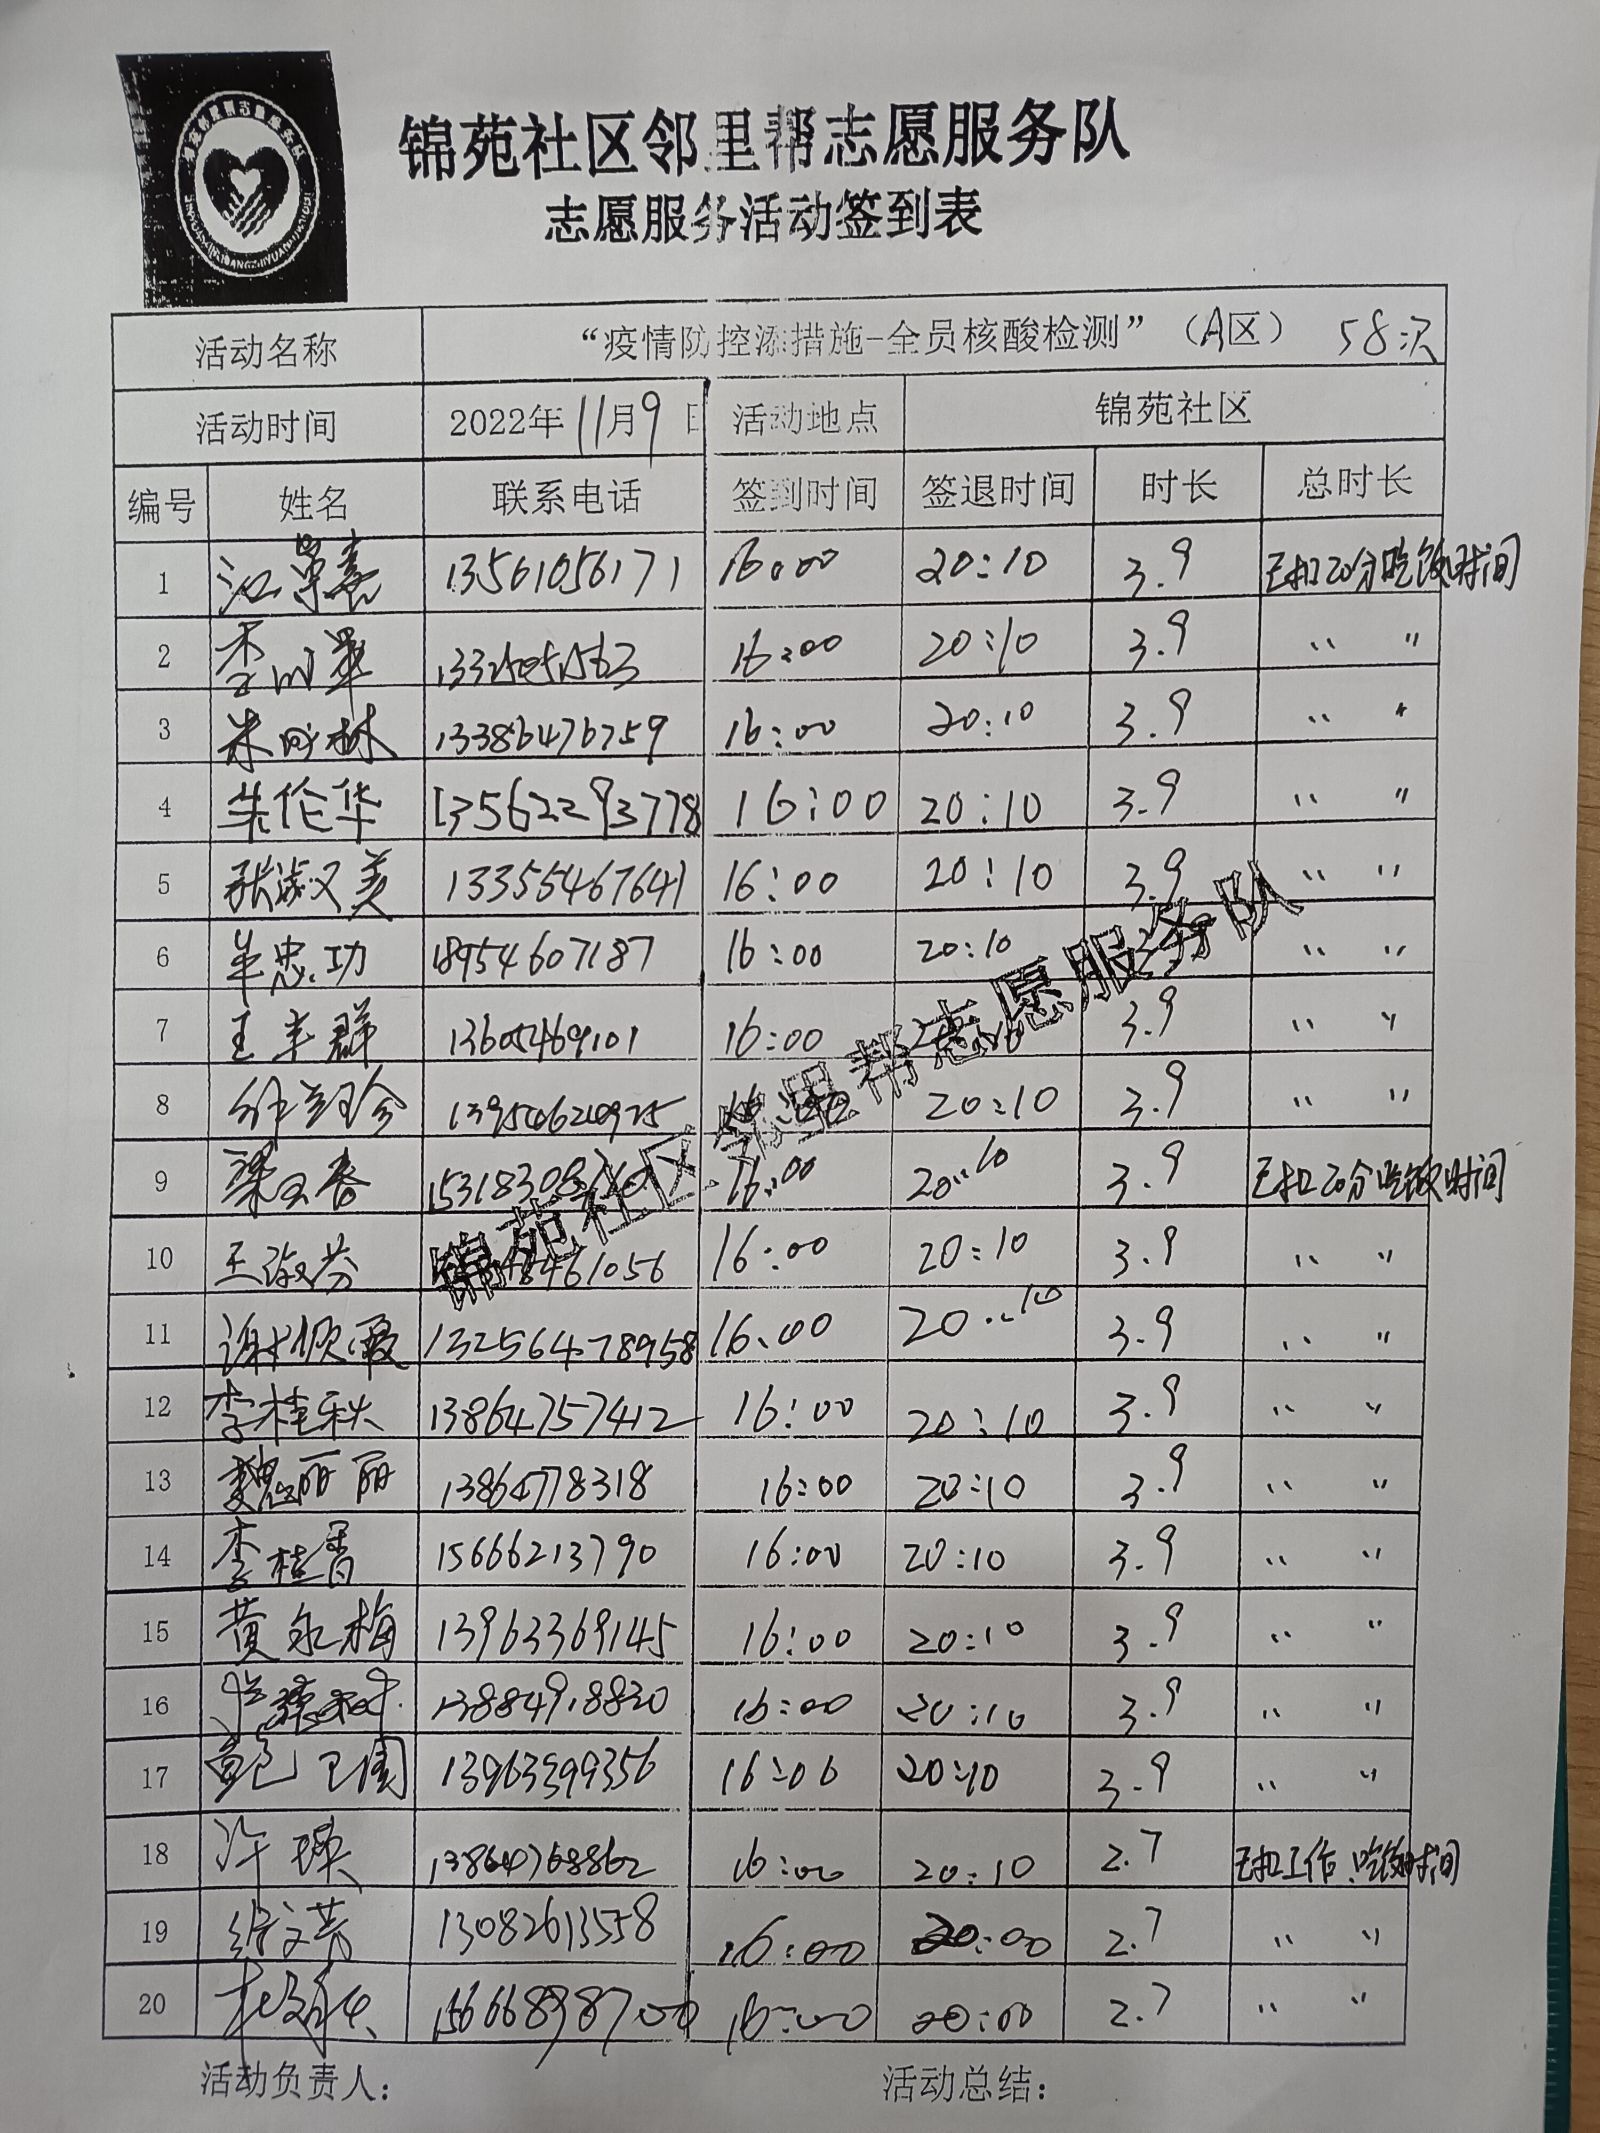 锦苑社区邻里帮志愿服务队
志愿服务活动签到表
活动名称 “疫情防控添措施-全员核酸检测”（A区） 58次
活动时间 2022年11月9日 活动地点 锦苑社区
编号 姓名 联系电话 签到时间 签退时间 时长 总时长
1 13561056171 16:00 20:10 3.9 已扣20分吃饭时间
2 16:00 20:10 3.9 〃 〃
3 13386476759 16:00 20:10 3.9 〃 〃
4 朱伦华 13562293778 16:00 20:10 3.9 〃 〃
5 张淑美 13355467641 16:00 20:10 3.9 〃 〃
6 18954607187 16:00 20:10 〃 〃
7 王丰群 13605469101 16:00 3.9 〃 〃
8 20:10 3.9 〃 〃
9 梁玉春 16:00 20:10 3.9 已扣20分吃饭时间
10 王淑芬 16:00 20:10 3.9 〃 〃
11 13256478958 16:00 20:10 3.9 〃 〃
12 李桂秋 13864757412 16:00 20:10 3.9 〃 〃
13 魏丽丽 13864778318 16:00 20:10 3.9 〃 〃
14 李桂香 15666213790 16:00 20:10 3.9 〃 〃
15 黄永梅 13963369145 16:00 20:10 3.9 〃 〃
16 13884918820 16:00 20:10 3.9 〃 〃
17 13963399356 16:00 20:10 3.9 〃 〃
18 许瑛 13864768862 16:00 20:10 2.7 已扣工作、吃饭时间
19 徐文芳 13082613558 16:00 20:00 2.7 〃 〃
20 15666898700 16:00 20:00 2.7 〃 〃
锦苑社区邻里帮志愿服务队
活动负责人： 活动总结：